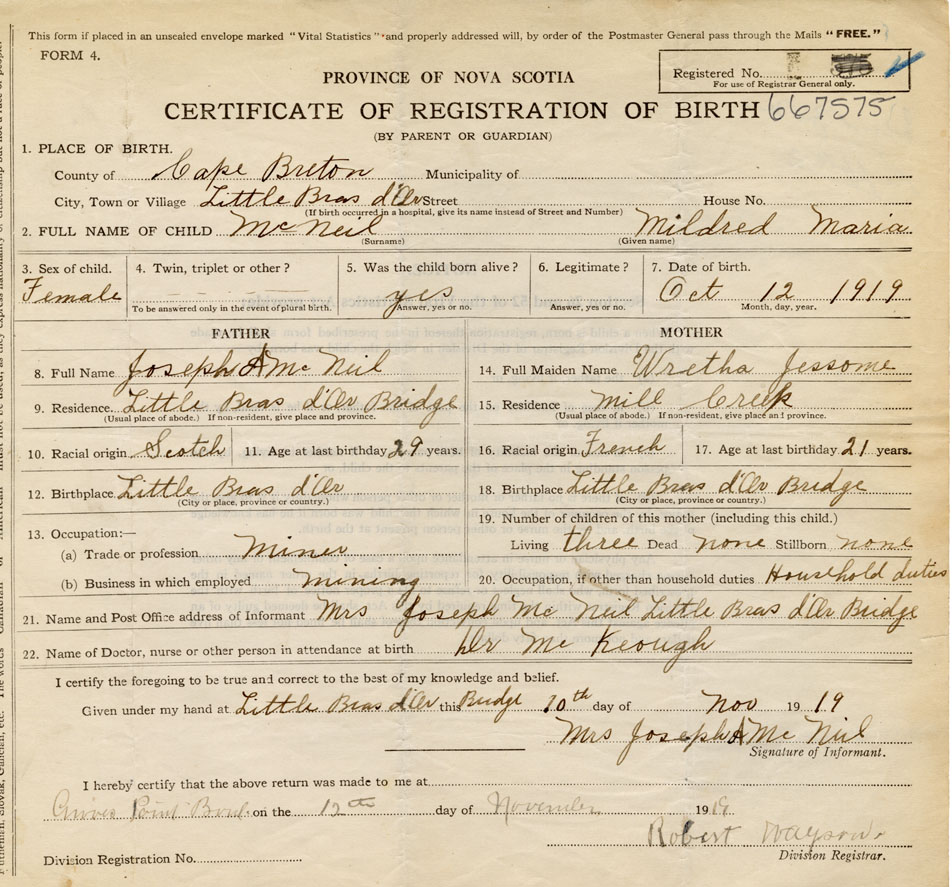 This form if placed in an unsealed envelope marked "Vital Statistics" and properly addressed will, by order of the Postmaster General pass through the Mails "FREE."
FORM 4.
Registered No.
For use of Registrar General only.
PROVINCE OF NOVA SCOTIA
CERTIFICATE OF REGISTRATION OF BIRTH 667575
(BY PARENT OR GUARDIAN)
1. PLACE OF BIRTH.
County of Cape Breton Municipality of
City, Town or Village Little Bras d'Or Street House No.
(If birth occurred in a hospital, give its name instead of Street and Number)
2. FULL NAME OF CHILD McNeil Mildred Maria
(Surname) (Given name)
3. Sex of child. 4. Twin, triplet or other? 5. Was the child born alive? 6. Legitimate? 7. Date of birth.
Female yes Oct 12 1919
To be answered only in the event of plural birth. Answer, yes or no. Answer, yes or no. Month, day, year.
FATHER
8. Full Name Joseph A Mc Neil
9. Residence. Little Bras d'Or Bridge
(Usual place of abode.) If non-resident, give place and province.
10. Racial origin Scotch 11. Age at last birthday 29 years.
12. Birthplace Little Bras d'Or
(City or place, province or country.)
13. Occupation:—
(a) Trade or profession Miner
(b) Business in which employed mining
MOTHER
14. Full Maiden Name Wretha Jessome
15. Residence Mill Creek
(Usual place of abode.) If non-resident, give place and province.
16. Racial origin French 17. Age at last birthday. 21 years.
18. Birthplace Little Bras d'Or Bridge
(City or place, province or country.)
19. Number of children of this mother (including this child.)
Living three Dead none Stillborn none
20. Occupation, if other than household duties Household duties
21. Name and Post Office address of Informant Mrs Joseph Mc Neil Little Bras d'Or Bridge
22. Name of Doctor, nurse or other person in attendance at birth Dr Mc Keough
I certify the foregoing to be true and correct to the best of my knowledge and belief.
Given under my hand at Little Bras d'Or this Bridge 10th day of Nov 1919
Mrs Joseph A Mc Neil
Signature of Informant.
I hereby certify that the above return was made to me at
on the 12th day of November 1919
Robert
Division Registrar.
Division Registration No.